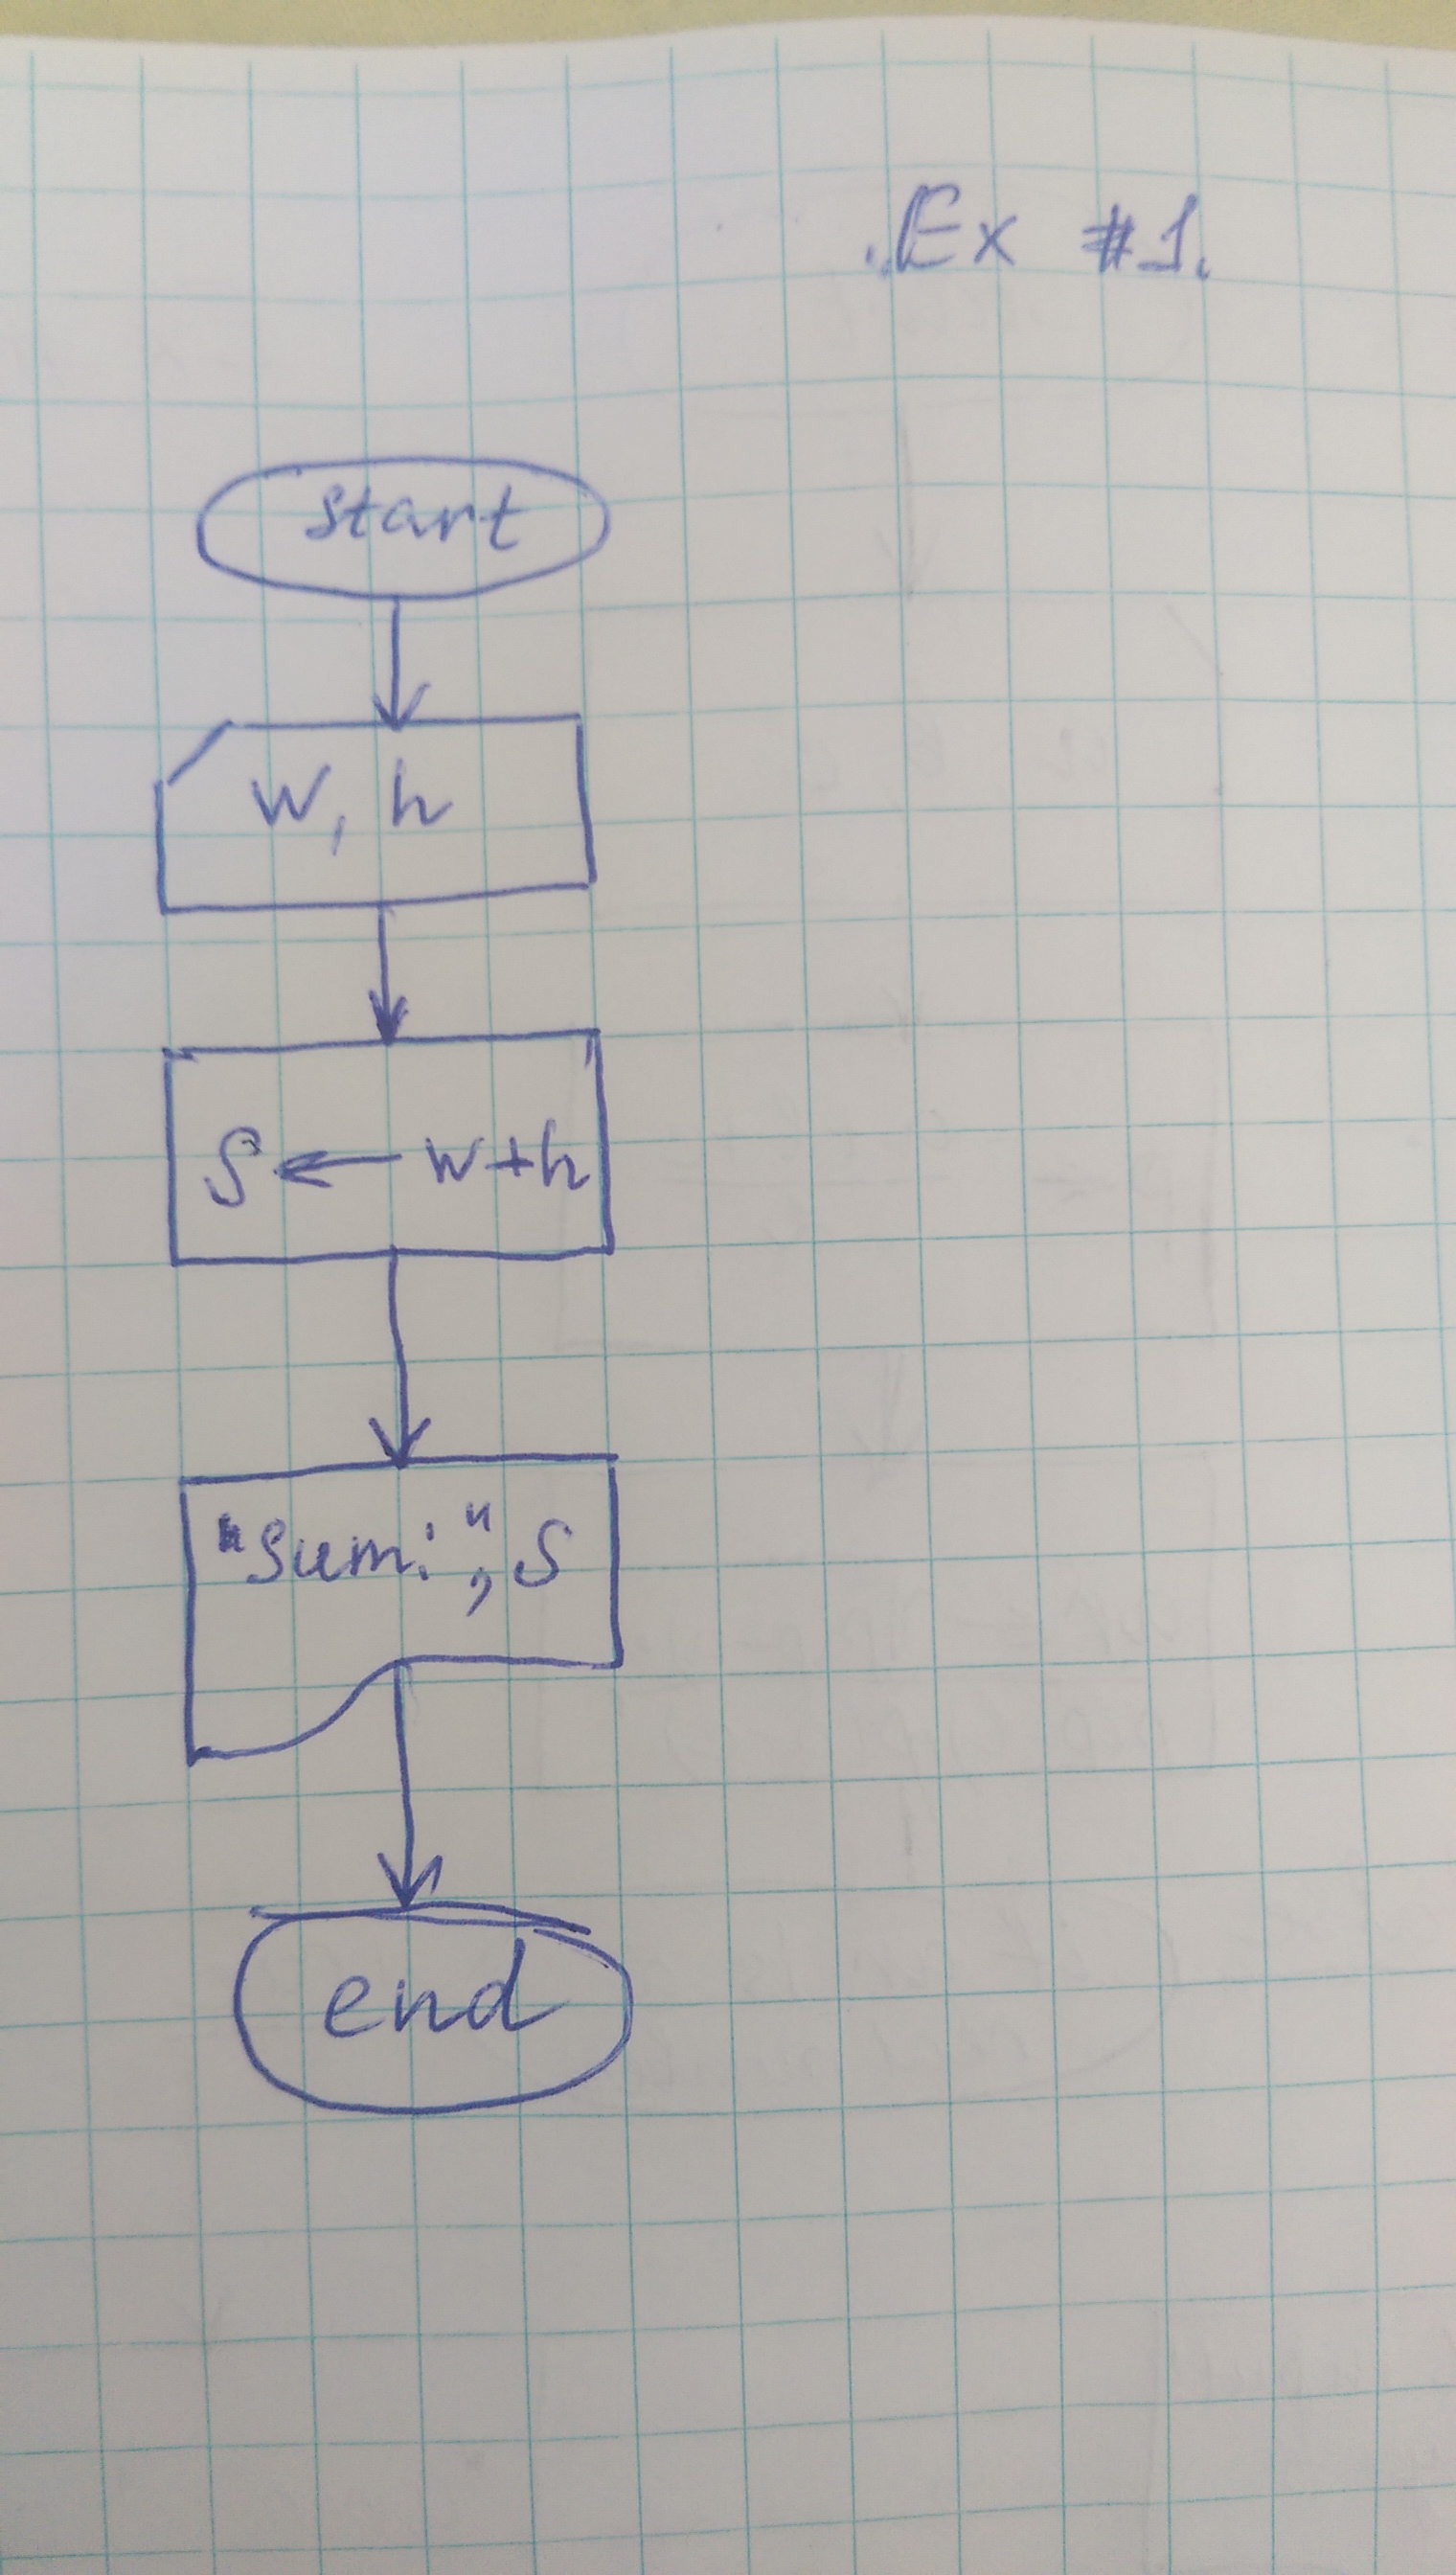 Ex #1.
start
W, h
S ← w+h
"Sum:", S
end